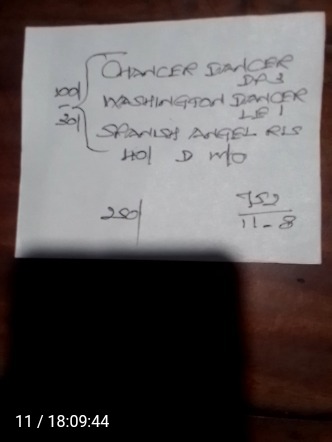 CHANCER DANCER
DP 3
100/
-
30/
WASHINGTON DANCER
LE 1
SPANISH ANGEL RLS
40/ D M/O
280/
752
11-8
11 / 18:09:44